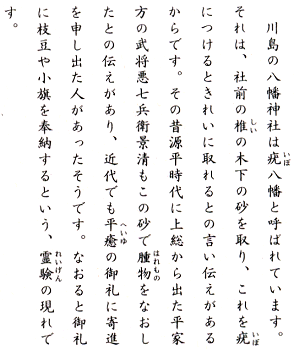 川島の八幡神社は疣八幡と呼ばれています。
それは、社前の椎の木下の砂を取り、これを疣
につけるときれいに取れるとの言い伝えがある
からです。その昔源平時代に上総から出た平家
方の武将悪七兵衛景清もこの砂で腫物をなおし
たとの伝えがあり、近代でも平癒の御礼に寄進
を申し出た人があったそうです。なおると御礼
に枝豆や小旗を奉納するという、霊験の現れで
す。